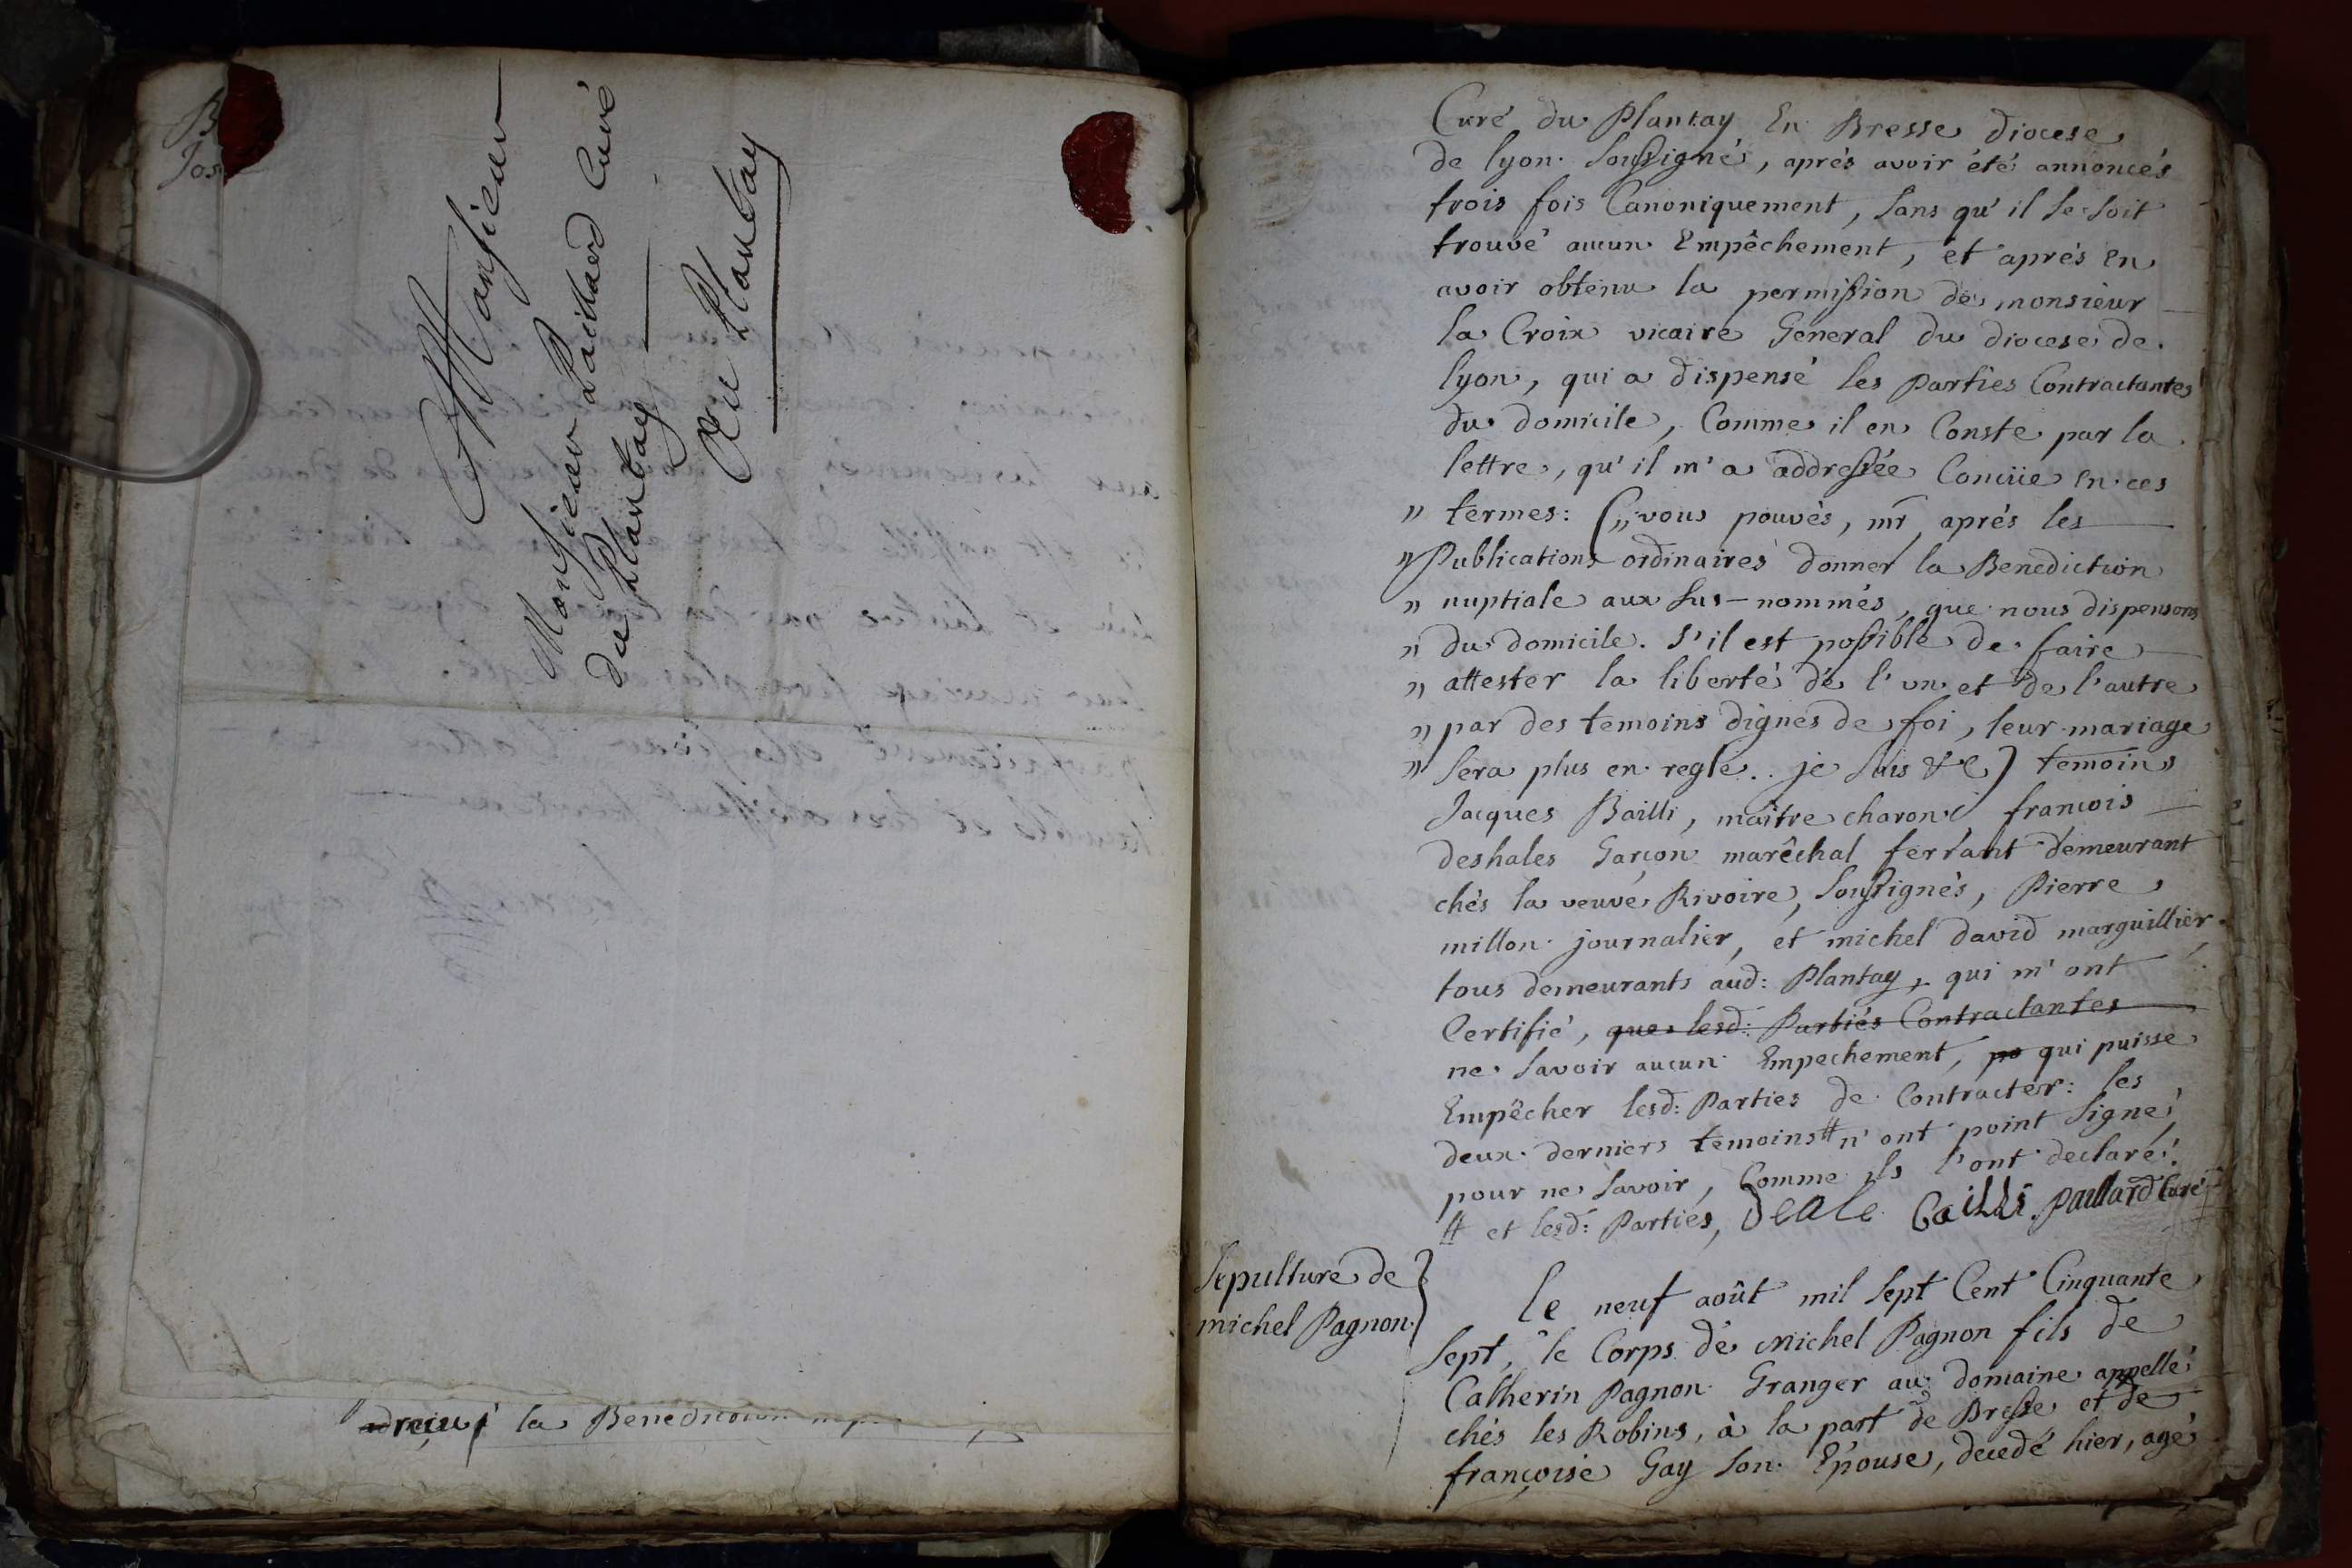 B
Jos
A Monsieur
Monsieur Paillard Curé
du Plantay
Au Plantay
reçu la Benediction
Curé du Plantay En Bresse Diocese
de lyon. Soussigné, aprés avoir été annoncés
trois fois Canoniquement, sans qu'il se soit
trouvé aucun Empêchement, et aprés en
avoir obtenu la permission de monsieur
la Croix vicaire General du diocese de
lyon, qui a dispensé les Parties Contractantes
du domicile, Comme il en Conste par la
lettre, qu'il m'a addressée Conçüe en ces
" termes: (" vous pouvés, mr, aprés les
" Publications ordinaires donner la Benediction
" nuptiale aux sus-nommés, que nous dispensons
" du domicile. S'il est possible de faire
" attester la liberté de l'un et de l'autre
" par des temoins dignes de foi, leur mariage
" sera plus en regle.. je suis &c) temoins
Jacques Bailli, maître charon, francois
deshales Garçon marêchal ferrant demeurant
chés la veuve Rivoire, soussignés, Pierre
millon journalier, et michel david marguillier
tous demeurants aud: Plantay, qui m'ont
Certifié, que lesd: Parties Contractantes
ne savoir aucun Empechement, po qui puisse
Empêcher lesd: Parties de Contracter: les
deux derniers temoins # n'ont point signé,
pour ne savoir, Comme ils l'ont declaré.
# et lesd: Parties, Deale Bailli Paillard Curé
Sepulture de
michel Pagnon.
le neuf août mil sept Cent Cinquante
sept, le Corps de Michel Pagnon fils de
Catherin Pagnon Granger au domaine appellé
chés les Robins, à la part de Bresse et de
françoise Gay son Epouse, decedé hier, agé